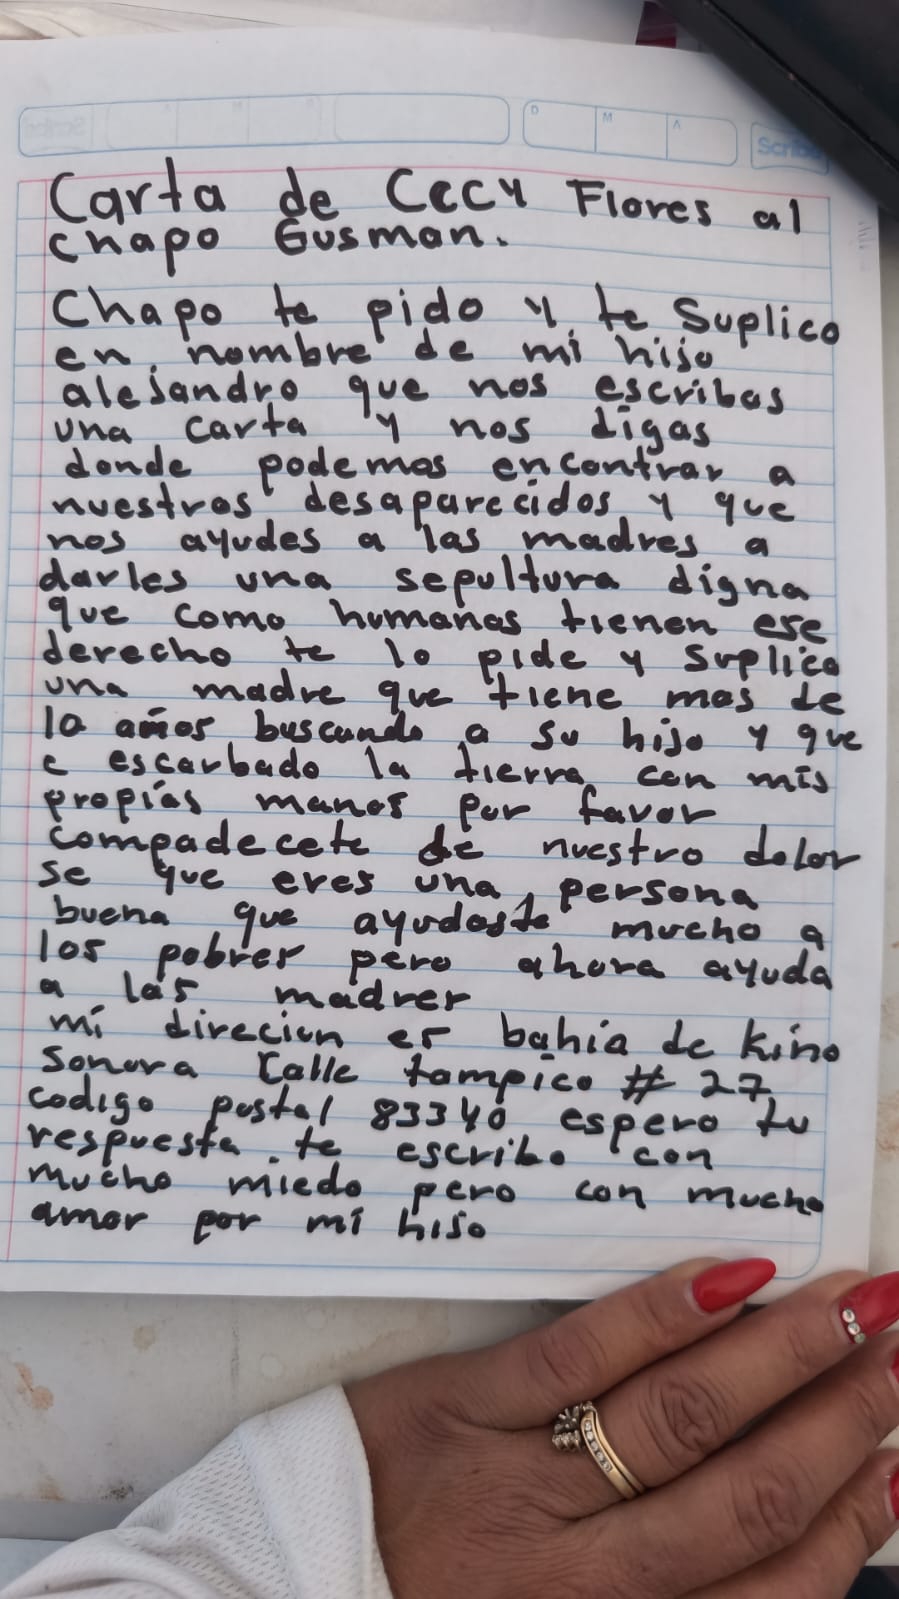 D M A
Scribe
Carta de Cecy Flores al
chapo Gusman.
Chapo te pido y te Suplico
en nombre de mi hijo
alejandro que nos escribas
una carta y nos digas
donde podemos encontrar a
nuestros desaparecidos y que
nos ayudes a las madres a
darles una sepultura digna
que como humanos tienen ese
derecho te lo pide y suplica
una madre que tiene mas de
10 años buscando a su hijo y que
e escarbado la tierra con mis
propias manos por favor
compadecete de nuestro dolor
se que eres una persona
buena que ayudaste mucho a
los pobres pero ahora ayuda
a las madres
mi direcion es bahia de kino
Sonora Calle tampico # 27
codigo postal 83340 espero tu
respuesta. te escribo con
mucho miedo pero con mucho
amor por mi hijo